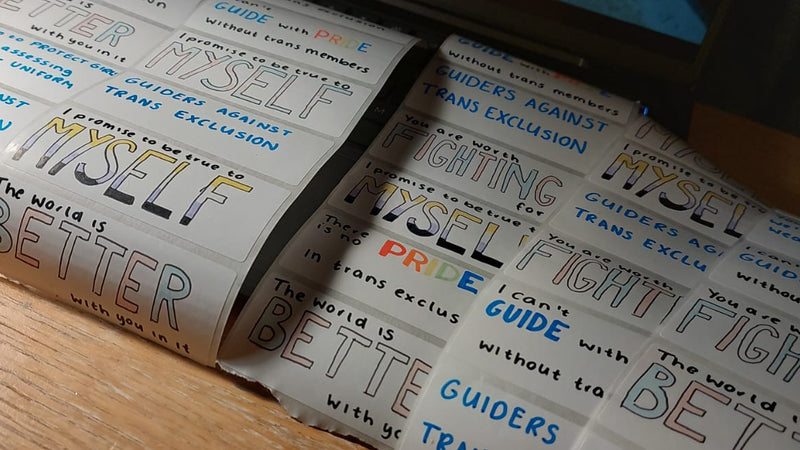 BETTER
with you in it
TO PROTECT
assessing
UNIFORM
can't
GUIDE with PRIDE
without trans members
I promise to be true to
MYSELF
GUIDERS AGAINST
TRANS EXCLUSION
I promise to be true to
MYSELF
The world is
BETTER
with you in it
GUIDE with
without trans members
GUIDERS AGAINST
TRANS EXCLUSION
You are worth
FIGHTING
for
I promise to be true
MYSEL
There
is no PRIDE
in trans exclus
The World is
BETTE
with yo
I promise to be
MYSEL
GUIDERS AG
TRANS EXCLU
You are worth
FIGHT
I can't
GUIDE with
without tra
GUIDERS
TRAN
I can't
GUID
withou
You are w
FIGH
The world i
BET